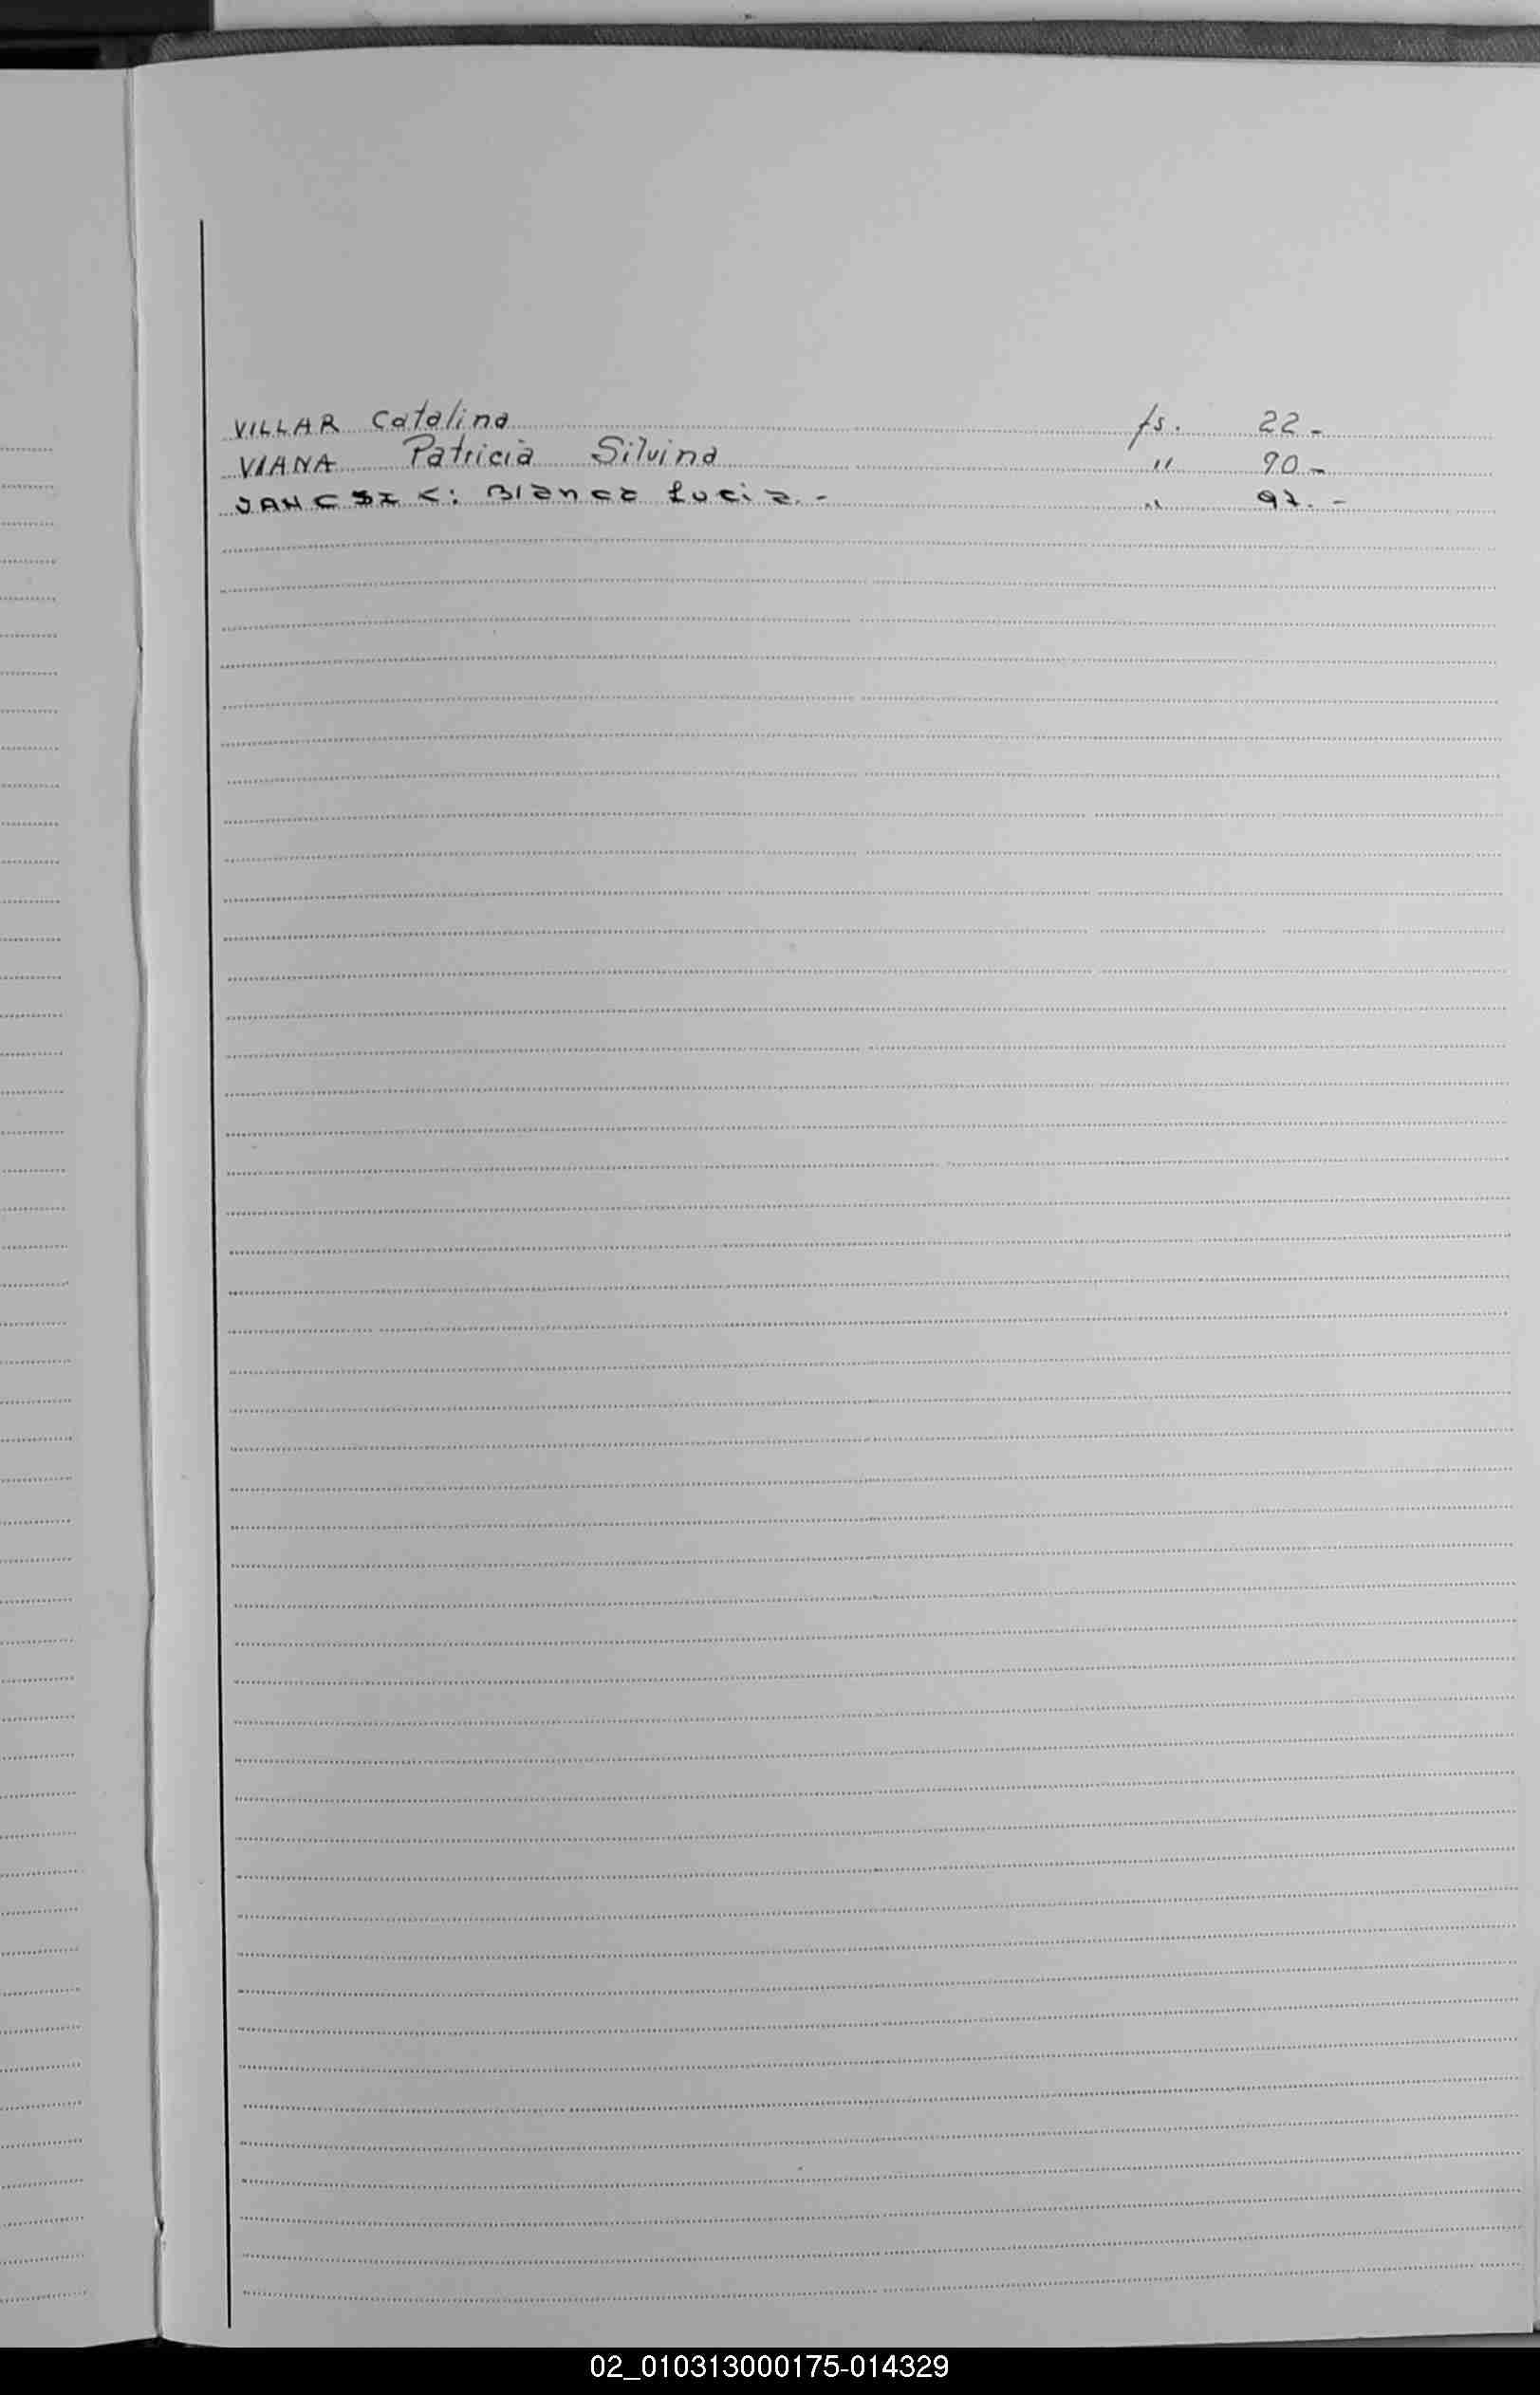 VILLAR Catalina fs. 22 -
VIANA Patricia Silvina " 90 -
Blanca Lucia. - " 97. -
02_010313000175-014329